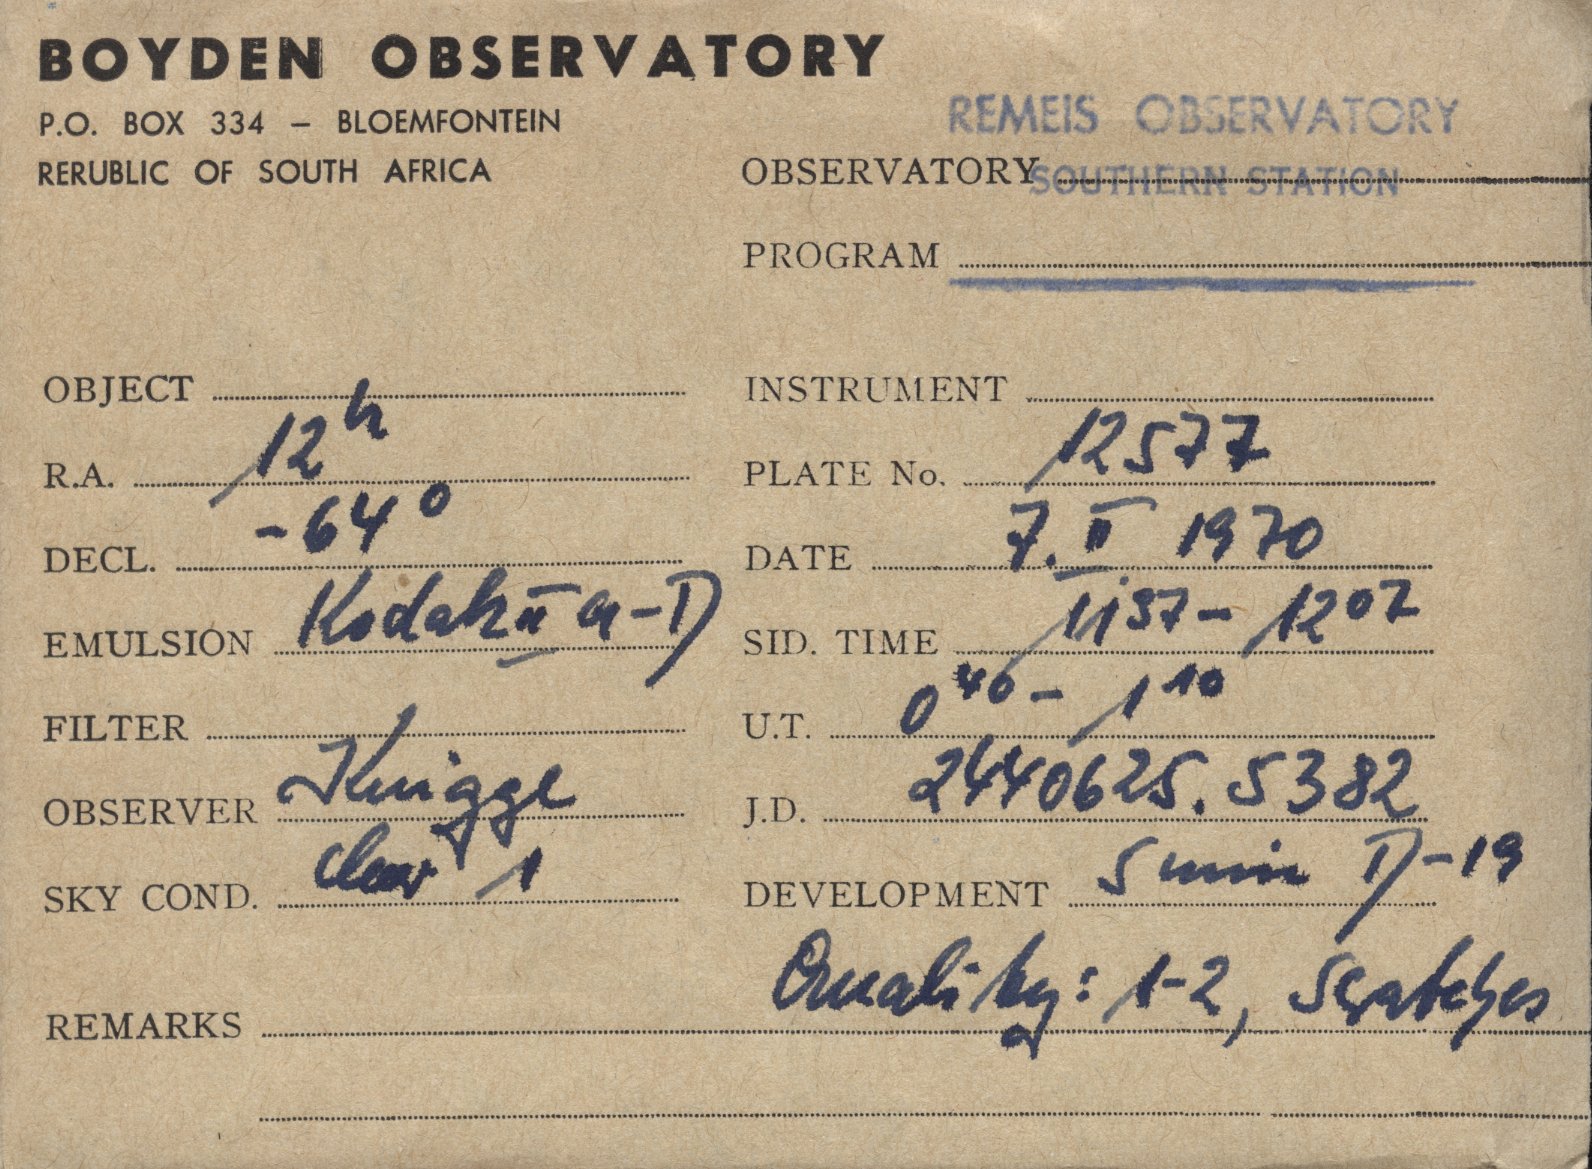 BOYDEN OBSERVATORY
P.O. BOX 334 – BLOEMFONTEIN
RERUBLIC OF SOUTH AFRICA
REMEIS OBSERVATORY
OBSERVATORY SOUTHERN STATION
PROGRAM
OBJECT
R.A. 12h
DECL. -64°
EMULSION Kodak II a-D
FILTER
OBSERVER Knigge
SKY COND. clear 1
INSTRUMENT
PLATE No. 12577
DATE 7. II 1970
SID. TIME 11 37 - 12 07
U.T. 0 40 - 1 10
J.D. 2440625.5382
DEVELOPMENT 5 min D-19
REMARKS Quality: 1-2, Scratches